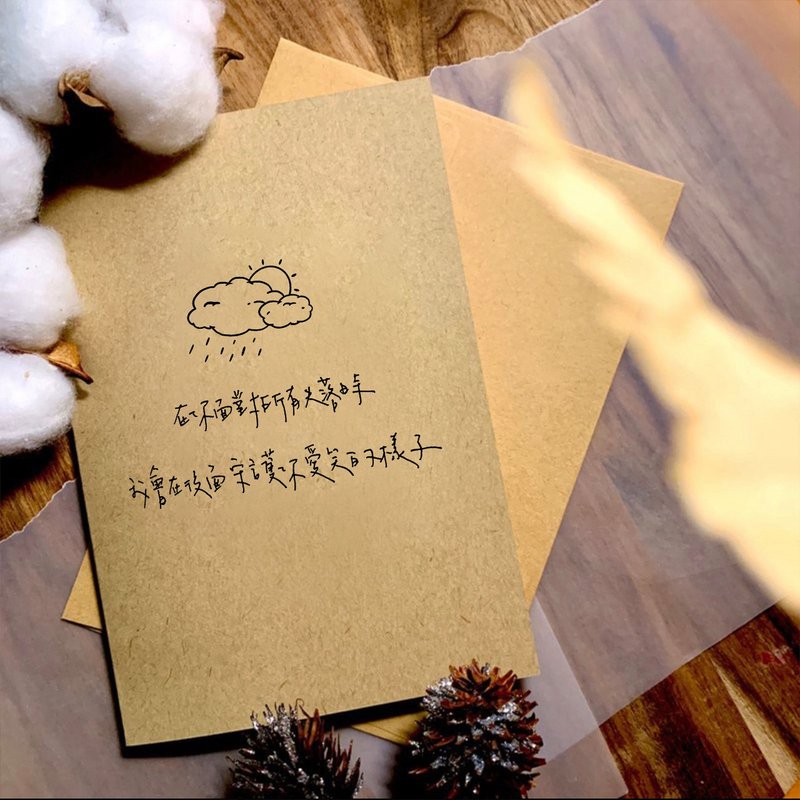 在你面對所有失落時
我會在後面守護你愛笑的樣子